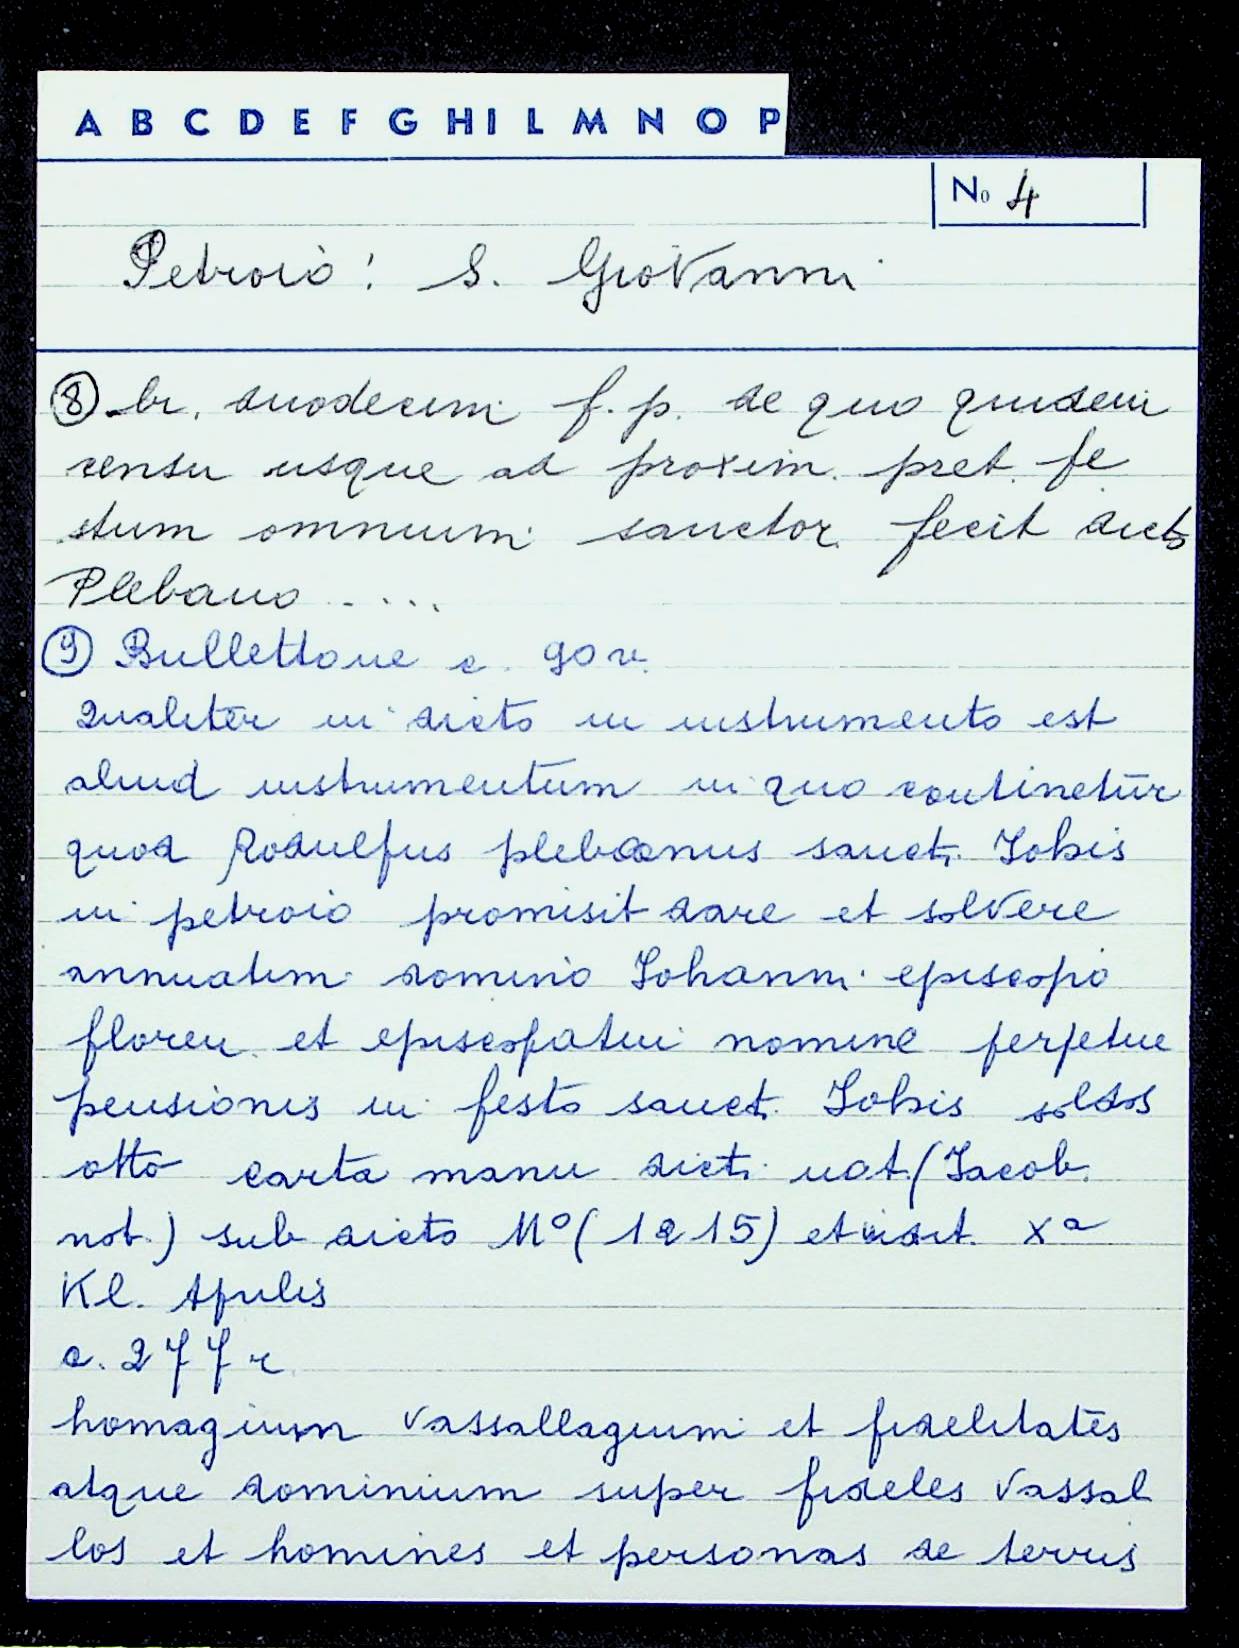 A B C D E F G H I L M N O P
No 4
Petroio: S. Giovanni
⑧ br. duodecim f. p. de quo quidem
censu usque ad proxim. pret. fe
stum omnium sanctor. fecit dicto
Plebano ....
⑨ Bullettone c. 90 v.
Qualiter in dicto in instrumento est
aliud instrumentum in quo continetur
quod Rodulfus plebanus sancti Iohis
in petroio promisit dare et solvere
annuatim domino Iohanni episcopo
floren. et episcopatui nomine perpetue
pensionis in festo sancti Iohis soldos
otto carta manu dicti not. (Iacob.
not.) sub dicto M° (1215) et indit. Xa
Kl. Aprilis
c. 277 r
homagium vassallagium et fidelitates
atque dominium super fideles vassal
los et homines et personas de terris